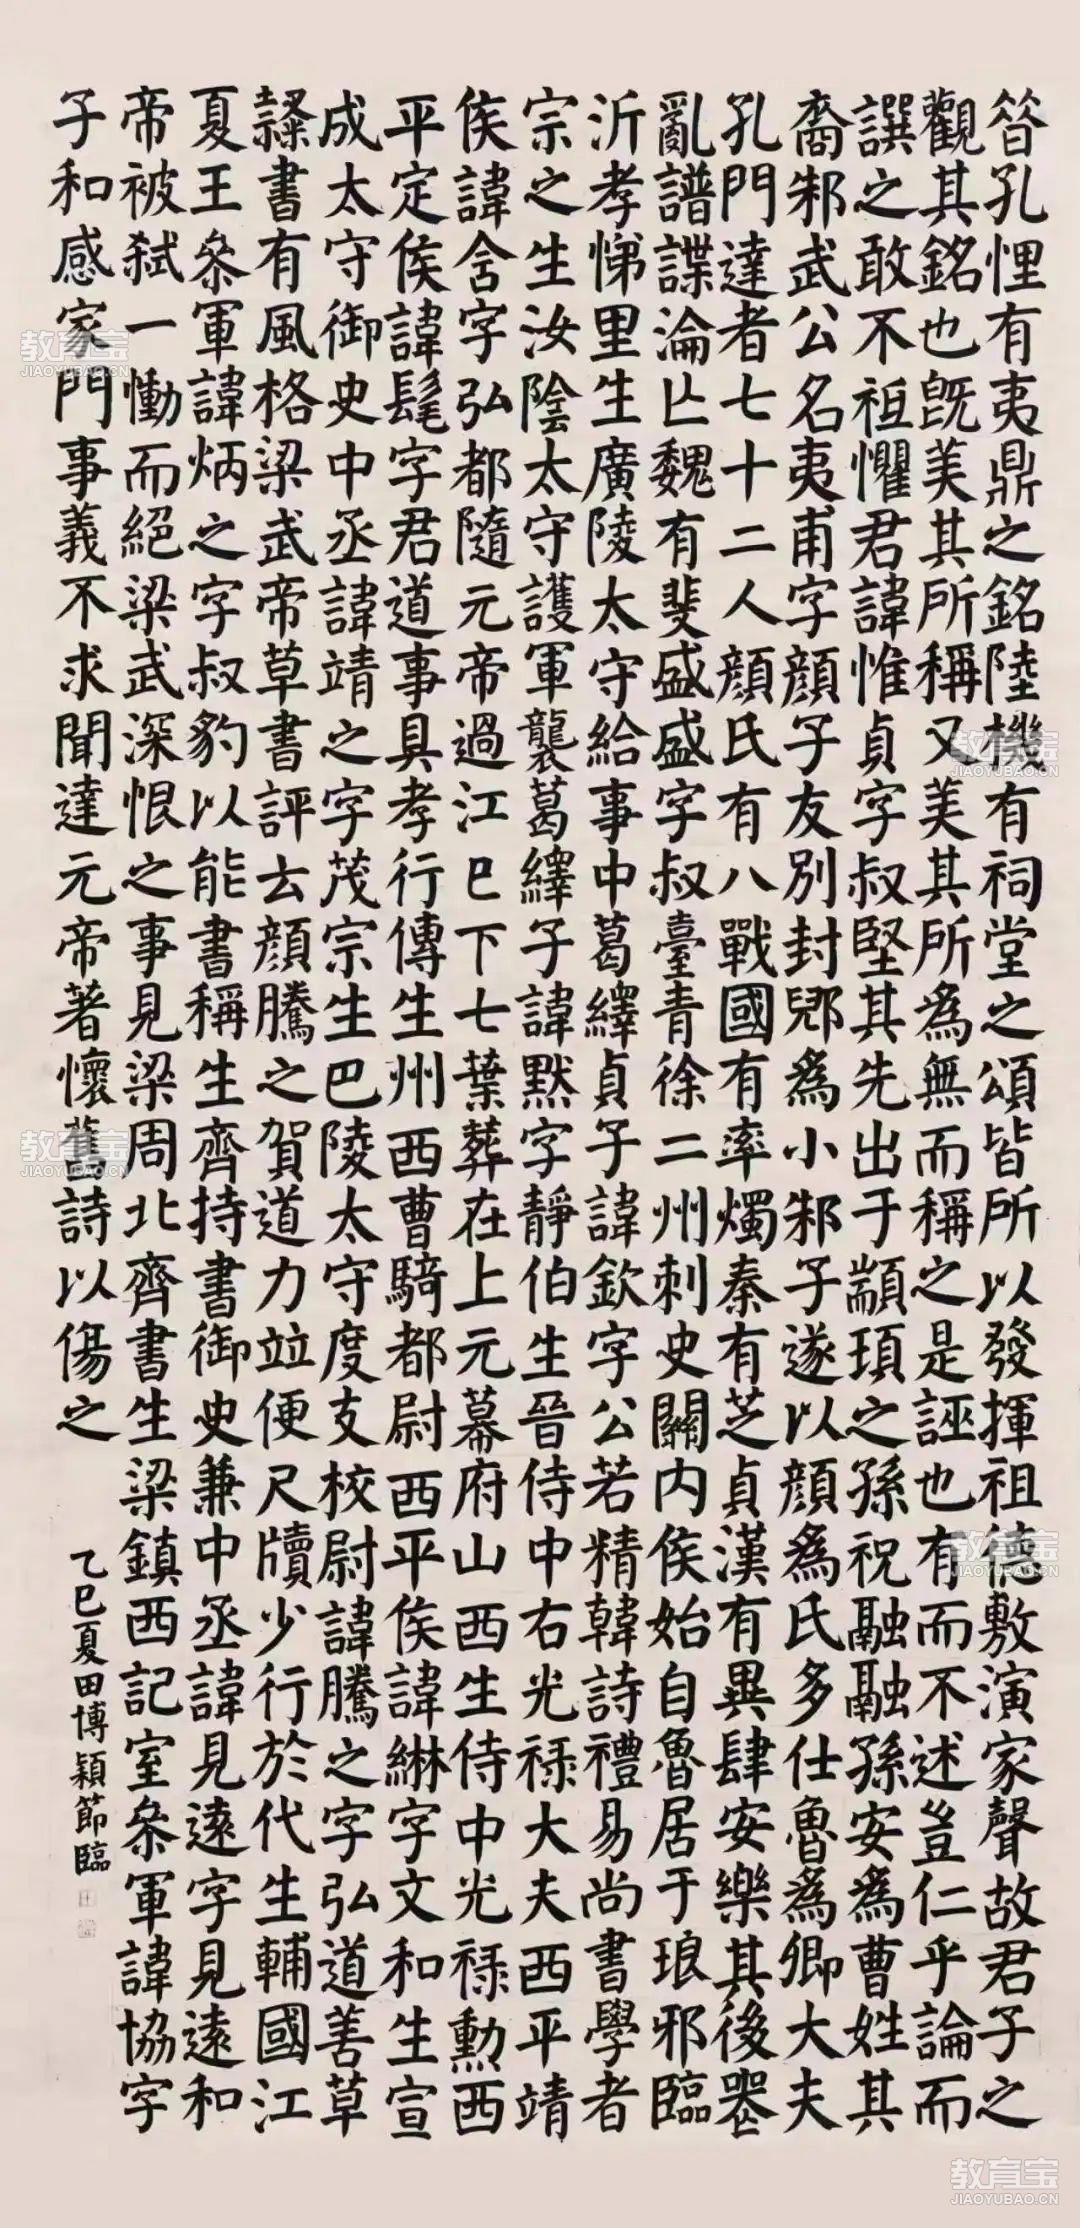 昔孔悝有夷鼎之銘陸機有祠堂之頌皆所以發揮祖德敷演家聲故君子之
觀其銘也旣美其所稱又美其所為無而稱之是誣也有而不述豈仁乎論而
譔之敢不祖懼君諱惟貞字叔堅其先出于顓頊之孫祝融融孫安為曹姓其
裔邾武公名夷甫字顏子友別封郳為小邾子遂以顏為氏多仕魯為卿大夫
孔門達者七十二人顏氏有八戰國有率燭秦有芝貞漢有異肆安樂其後喪
亂譜諜淪亡魏有斐盛盛字叔臺青徐二州刺史關內侯始自魯居于琅邪臨
沂孝悌里生廣陵太守給事中葛繹貞子諱欽字公若精韓詩禮易尚書學者
宗之生汝陰太守護軍襲葛繹子諱默字靜伯生晉侍中右光祿大夫西平靖
侯諱含字弘都隨元帝過江已下七葉葬在上元幕府山西生侍中光祿勳西
平定侯諱髦字君道事具孝行傳生州西曹騎都尉西平侯諱綝字文和生宣
成太守御史中丞諱靖之字茂宗生巴陵太守度支校尉諱騰之字弘道善草
隸書有風格梁武帝草書評云顏騰之賀道力並便尺牘少行於代生輔國江
夏王參軍諱炳之字叔豹以能書稱生齊持書御史兼中丞諱見遠字見遠和
帝被弒一慟而絕梁武深恨之事見梁周北齊書生梁鎮西記室參軍諱協字
子和感家門事義不求聞達元帝著懷舊詩以傷之
乙巳夏田博穎節臨
教育宝
JIAOYUBAO.CN
教育宝
JIAOYUBAO.CN
教育宝
JIAOYUBAO.CN
教育宝
JIAOYUBAO.CN
教育宝
JIAOYUBAO.CN